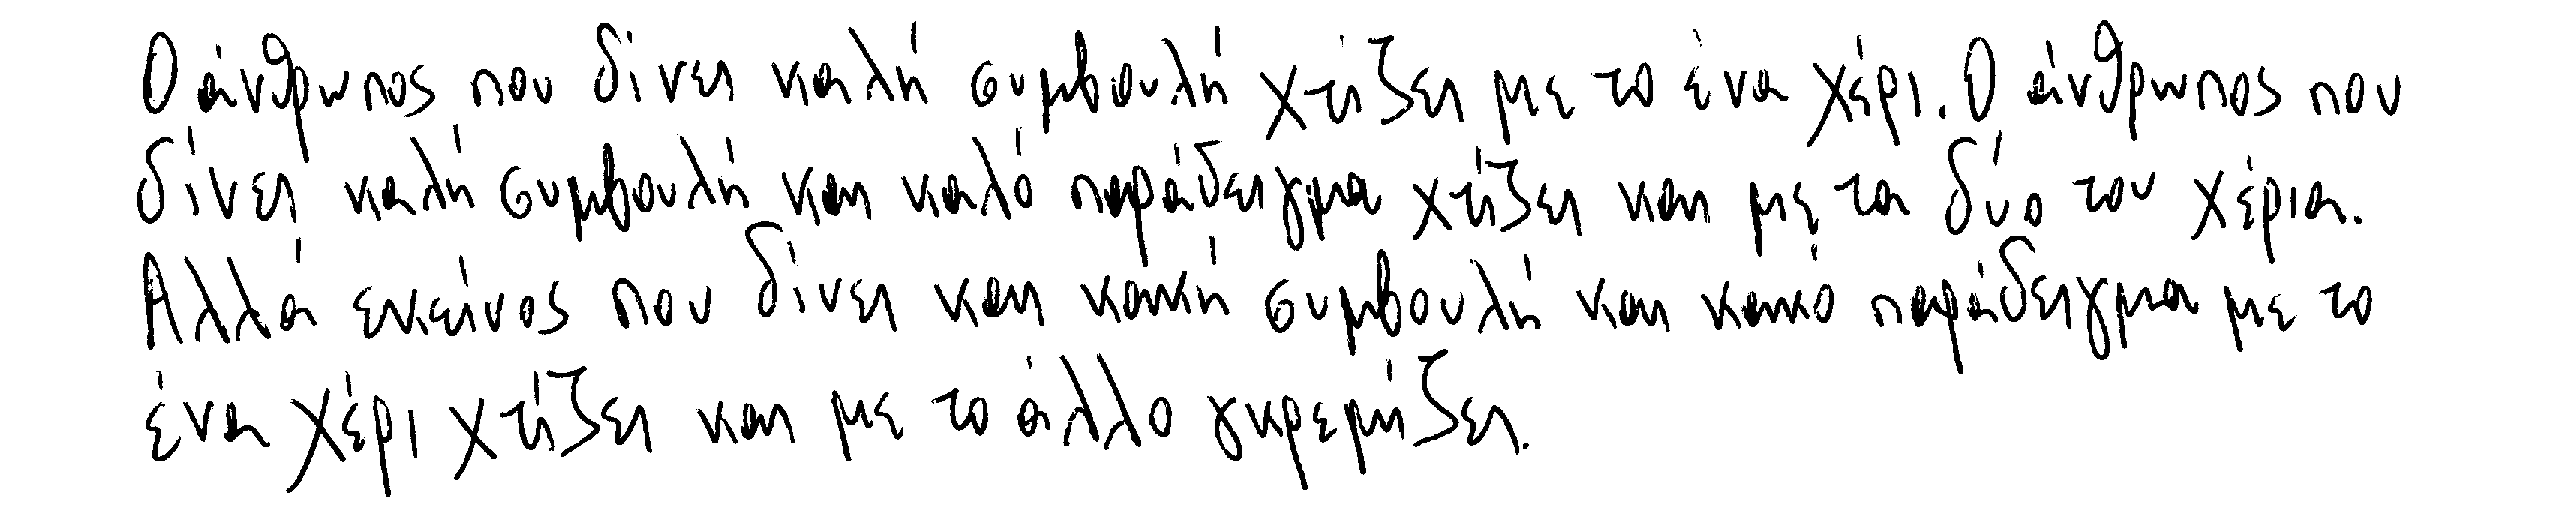 Ο άνθρωπος που δίνει καλή συμβουλή χτίζει με το ένα χέρι. Ο άνθρωπος που
δίνει καλή συμβουλή και καλό παράδειγμα χτίζει και με τα δύο του χέρια.
Αλλά εκείνος που δίνει και κακή συμβουλή και κακό παράδειγμα με το
ένα χέρι χτίζει και με το άλλο γκρεμίζει.